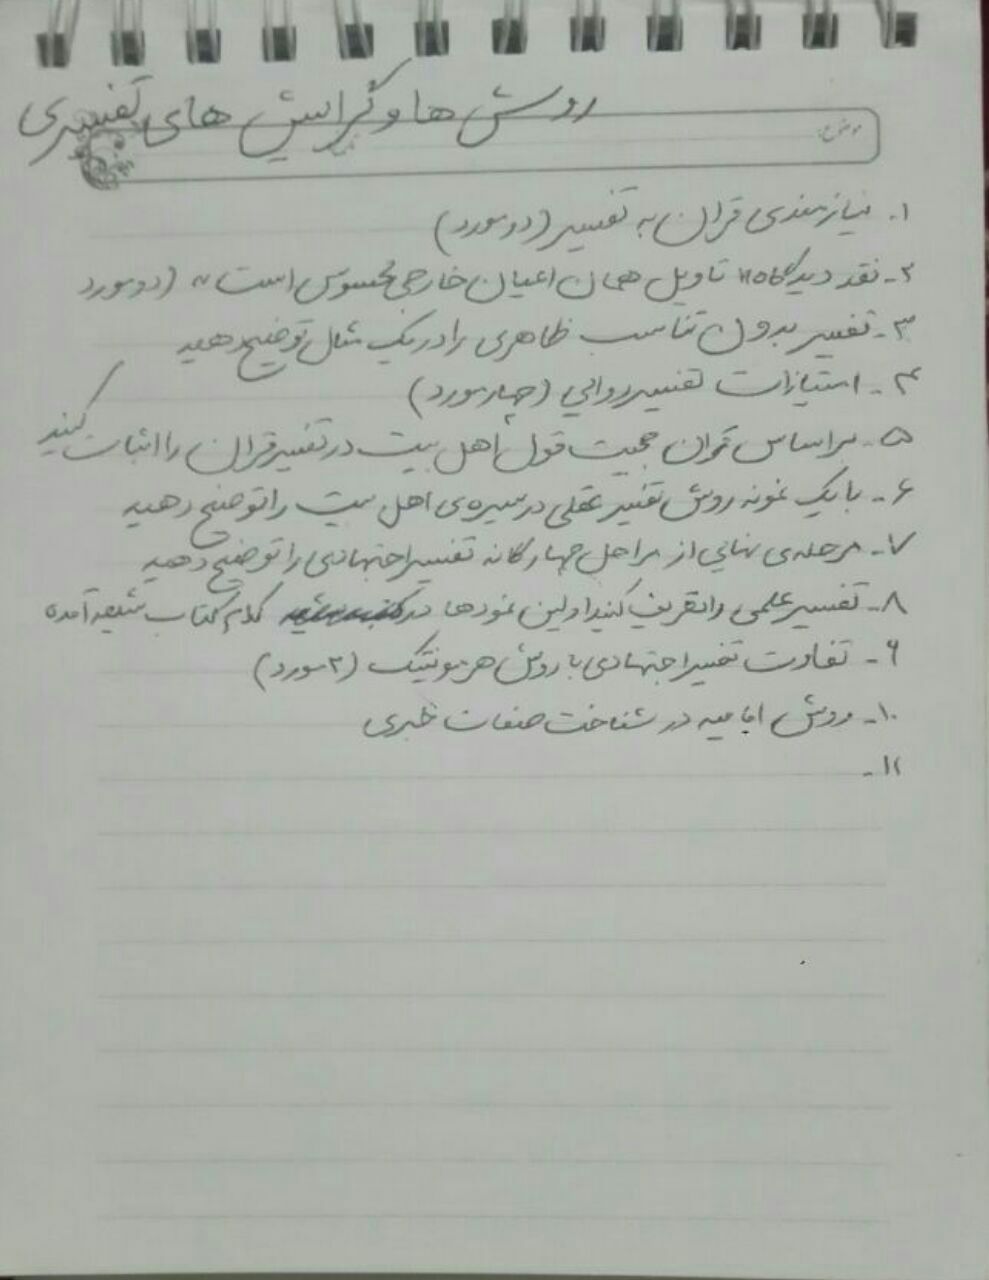 روش ها و گرایش های تفسیری
موضوع:
۱- نیازمندی قران به تفسیر (دو مورد)
۲- نقد دیدگاه " تاویل همان اعیان خارجی محسوس است " (دو مورد
۳- تفسیر بدون تناسب ظاهری را در یک مثال توضیح دهید
۴- امتیازات تفسیر روایی (چهار مورد)
۵- براساس قران حجیت قول اهل بیت در تفسیر قران را اثبات کنید
۶- با یک نمونه روش تفسیر عقلی در سیره ی اهل بیت را توضیح دهید
۷- مرحله ی نهایی از مراحل چهارگانه تفسیر اجتهادی را توضیح دهید
۸- تفسیر علمی را تعریف کنید اولین نمودها در کدام کتاب شیعه آمده
۹- تفاوت تفسیر اجتهادی با روش هرمونتیک (۲ مورد)
۱۰- روش امامیه در شناخت صفات خبری
۱۱-